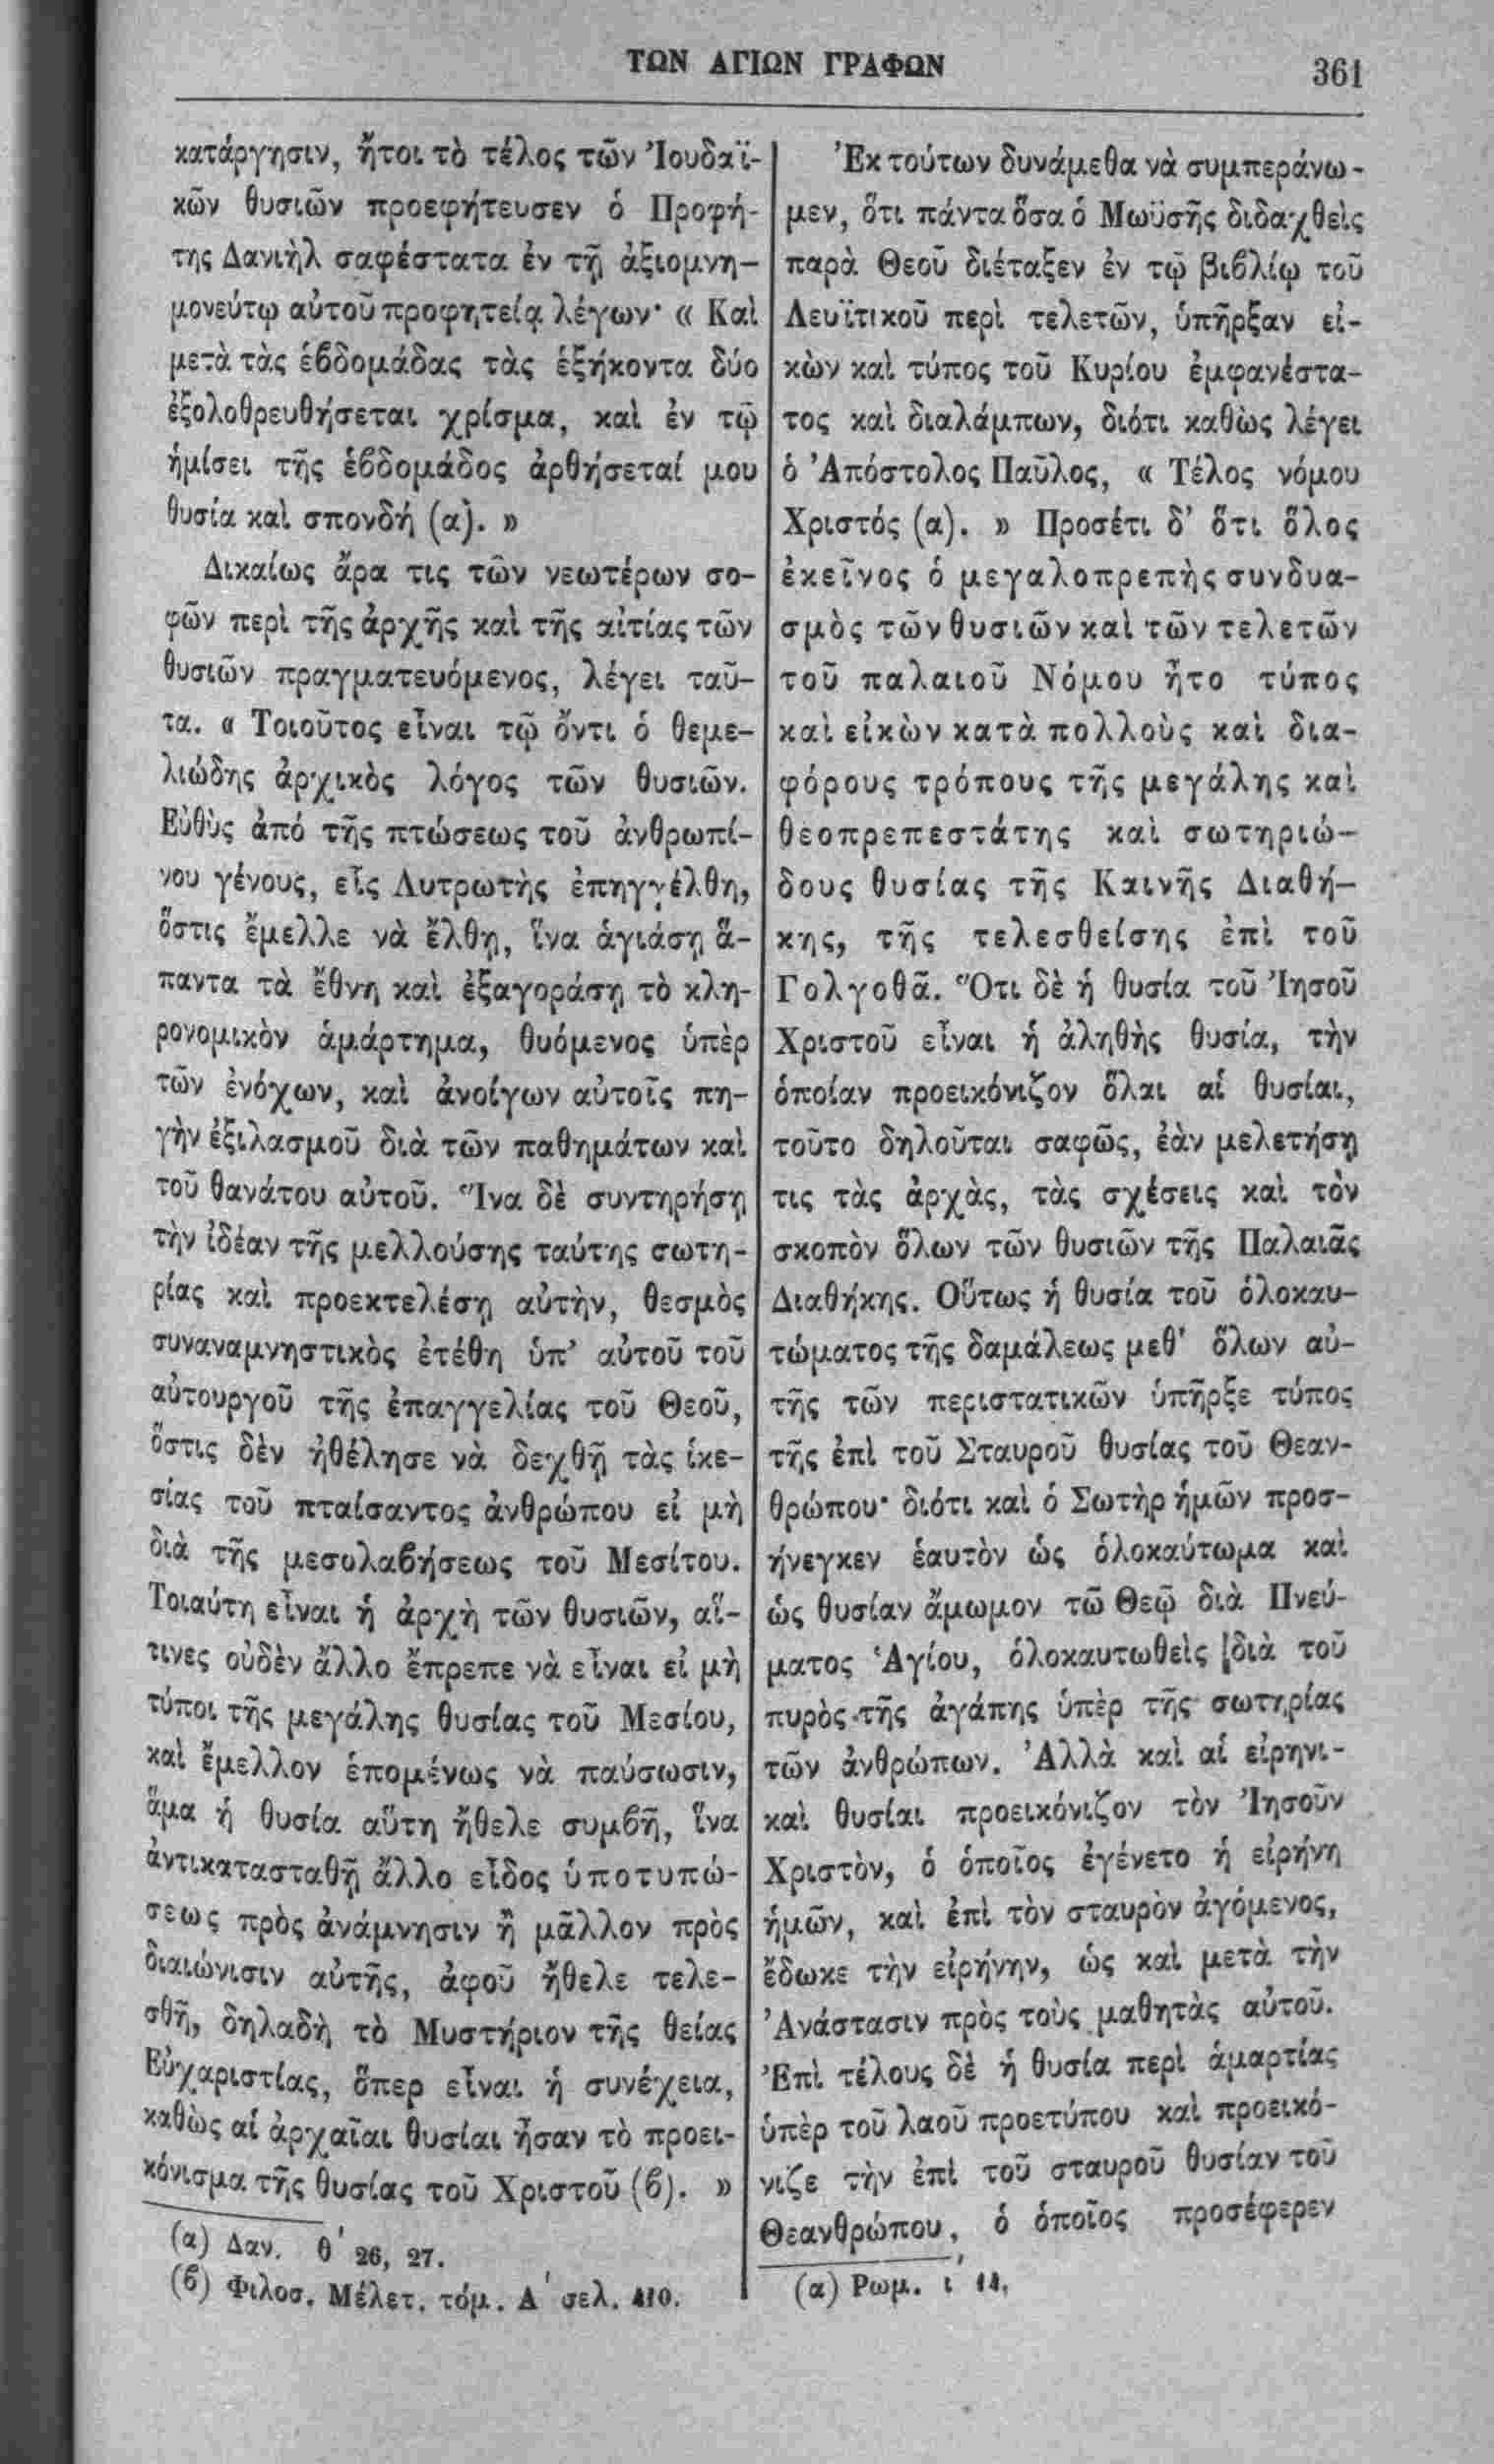 ΤΩΝ ΑΓΙΩΝ ΓΡΑΦΩΝ
361
κατάργησιν, ἤτοι τὸ τέλος τῶν Ἰουδαϊ-
κῶν θυσιῶν προεφήτευσεν ὁ Προφή-
της Δανιὴλ σαφέστατα ἐν τῇ ἀξιομνη-
μονεύτῳ αὐτοῦ προφητείᾳ λέγων· « Καὶ
μετὰ τὰς ἑϐδομάδας τὰς ἑξήκοντα δύο
ἐξολοθρευθήσεται χρίσμα, καὶ ἐν τῷ
ἡμίσει τῆς ἑϐδομάδος ἀρθήσεταί μου
θυσία καὶ σπονδή (α). »
Δικαίως ἄρα τις τῶν νεωτέρων σο-
φῶν περὶ τῆς ἀρχῆς καὶ τῆς αἰτίας τῶν
θυσιῶν πραγματευόμενος, λέγει ταῦ-
τα. « Τοιοῦτος εἶναι τῷ ὄντι ὁ θεμε-
λιώδης ἀρχικὸς λόγος τῶν θυσιῶν.
Εὐθὺς ἀπό τῆς πτώσεως τοῦ ἀνθρωπί-
νου γένους, εἷς Λυτρωτὴς ἐπηγγέλθη,
ὅστις ἔμελλε νὰ ἔλθῃ, ἵνα ἁγιάσῃ ἅ-
παντα τὰ ἔθνη καὶ ἐξαγοράσῃ τὸ κλη-
ρονομικὸν ἁμάρτημα, θυόμενος ὑπὲρ
τῶν ἐνόχων, καὶ ἀνοίγων αὐτοῖς πη-
γὴν ἐξιλασμοῦ διὰ τῶν παθημάτων καὶ
τοῦ θανάτου αὐτοῦ. Ἵνα δὲ συντηρήσῃ
τὴν ἰδέαν τῆς μελλούσης ταύτης σωτη-
ρίας καὶ προεκτελέσῃ αὐτὴν, θεσμὸς
συναναμνηστικὸς ἐτέθη ὑπ’ αὐτοῦ τοῦ
αὐτουργοῦ τῆς ἐπαγγελίας τοῦ Θεοῦ,
ὅστις δὲν ἠθέλησε νὰ δεχθῇ τὰς ἱκε-
σίας τοῦ πταίσαντος ἀνθρώπου εἰ μὴ
διὰ τῆς μεσολαϐήσεως τοῦ Μεσίτου.
Τοιαύτη εἶναι ἡ ἀρχὴ τῶν θυσιῶν, αἵ-
τινες οὐδὲν ἄλλο ἔπρεπε νὰ εἶναι εἰ μὴ
τύποι τῆς μεγάλης θυσίας τοῦ Μεσίου,
καὶ ἔμελλον ἑπομένως νὰ παύσωσιν,
ἅμα ἡ θυσία αὕτη ἤθελε συμϐῆ, ἵνα
ἀντικατασταθῇ ἄλλο εἶδος ὑποτυπώ-
σεως πρὸς ἀνάμνησιν ἢ μᾶλλον πρὸς
διαιώνισιν αὐτῆς, ἀφοῦ ἤθελε τελε-
σθῆ, δηλαδὴ τὸ Μυστήριον τῆς θείας
Εὐχαριστίας, ὅπερ εἶναι ἡ συνέχεια,
καθὼς αἱ ἀρχαῖαι θυσίαι ἦσαν τὸ προει-
κόνισμα τῆς θυσίας τοῦ Χριστοῦ (ϐ). »
(α) Δαν. θ΄ 26, 27.
(ϐ) Φιλοσ. Μέλετ. τόμ. Α΄ σελ. 410.
Ἐκ τούτων δυνάμεθα νὰ συμπεράνω-
μεν, ὅτι πάντα ὅσα ὁ Μωϋσῆς διδαχθεὶς
παρὰ Θεοῦ διέταξεν ἐν τῷ βιϐλίῳ τοῦ
Λευϊτικοῦ περὶ τελετῶν, ὑπῆρξαν εἰ-
κὼν καὶ τύπος τοῦ Κυρίου ἐμφανέστα-
τος καὶ διαλάμπων, διότι καθὼς λέγει
ὁ Ἀπόστολος Παῦλος, « Τέλος νόμου
Χριστός (α). » Προσέτι δ’ ὅτι ὅλος
ἐκεῖνος ὁ μεγαλοπρεπὴς συνδυα-
σμὸς τῶν θυσιῶν καὶ τῶν τελετῶν
τοῦ παλαιοῦ Νόμου ἦτο τύπος
καὶ εἰκὼν κατὰ πολλοὺς καὶ δια-
φόρους τρόπους τῆς μεγάλης καὶ
θεοπρεπεστάτης καὶ σωτηριώ-
δους θυσίας τῆς Καινῆς Διαθή-
κης, τῆς τελεσθείσης ἐπὶ τοῦ
Γολγοθᾶ. Ὅτι δὲ ἡ θυσία τοῦ Ἰησοῦ
Χριστοῦ εἶναι ἡ ἀληθὴς θυσία, τὴν
ὁποίαν προεικόνιζον ὅλαι αἱ θυσίαι,
τοῦτο δηλοῦται σαφῶς, ἐὰν μελετήσῃ
τις τὰς ἀρχὰς, τὰς σχέσεις καὶ τὸν
σκοπὸν ὅλων τῶν θυσιῶν τῆς Παλαιᾶς
Διαθήκης. Οὕτως ἡ θυσία τοῦ ὁλοκαυ-
τώματος τῆς δαμάλεως μεθ’ ὅλων αὐ-
τῆς τῶν περιστατικῶν ὑπῆρξε τύπος
τῆς ἐπὶ τοῦ Σταυροῦ θυσίας τοῦ Θεαν-
θρώπου· διότι καὶ ὁ Σωτὴρ ἡμῶν προσ-
ήνεγκεν ἑαυτὸν ὡς ὁλοκαύτωμα καὶ
ὡς θυσίαν ἄμωμον τῷ Θεῷ διὰ Πνεύ-
ματος Ἁγίου, ὁλοκαυτωθεὶς διὰ τοῦ
πυρὸς τῆς ἀγάπης ὑπὲρ τῆς σωτηρίας
τῶν ἀνθρώπων. Ἀλλὰ καὶ αἱ εἰρηνι-
καὶ θυσίαι προεικόνιζον τὸν Ἰησοῦν
Χριστὸν, ὁ ὁποῖος ἐγένετο ἡ εἰρήνη
ἡμῶν, καὶ ἐπὶ τὸν σταυρὸν ἀγόμενος,
ἔδωκε τὴν εἰρήνην, ὡς καὶ μετὰ τὴν
Ἀνάστασιν πρὸς τοὺς μαθητὰς αὐτοῦ.
Ἐπὶ τέλους δὲ ἡ θυσία περὶ ἁμαρτίας
ὑπὲρ τοῦ λαοῦ προετύπου καὶ προεικό-
νιζε τὴν ἐπὶ τοῦ σταυροῦ θυσίαν τοῦ
Θεανθρώπου, ὁ ὁποῖος προσέφερεν
(α) Ρωμ. ι΄ 14.